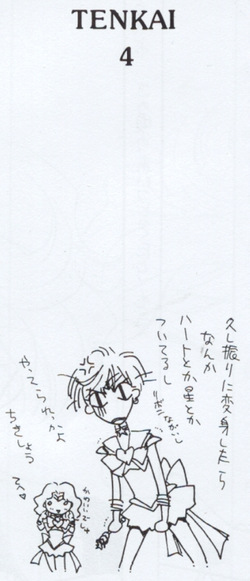 TENKAI
4
久し振りに変身したら
なんか
ハートとか星とか
ついてるし
リボンながいし
やってられっかよ
ちきしょう